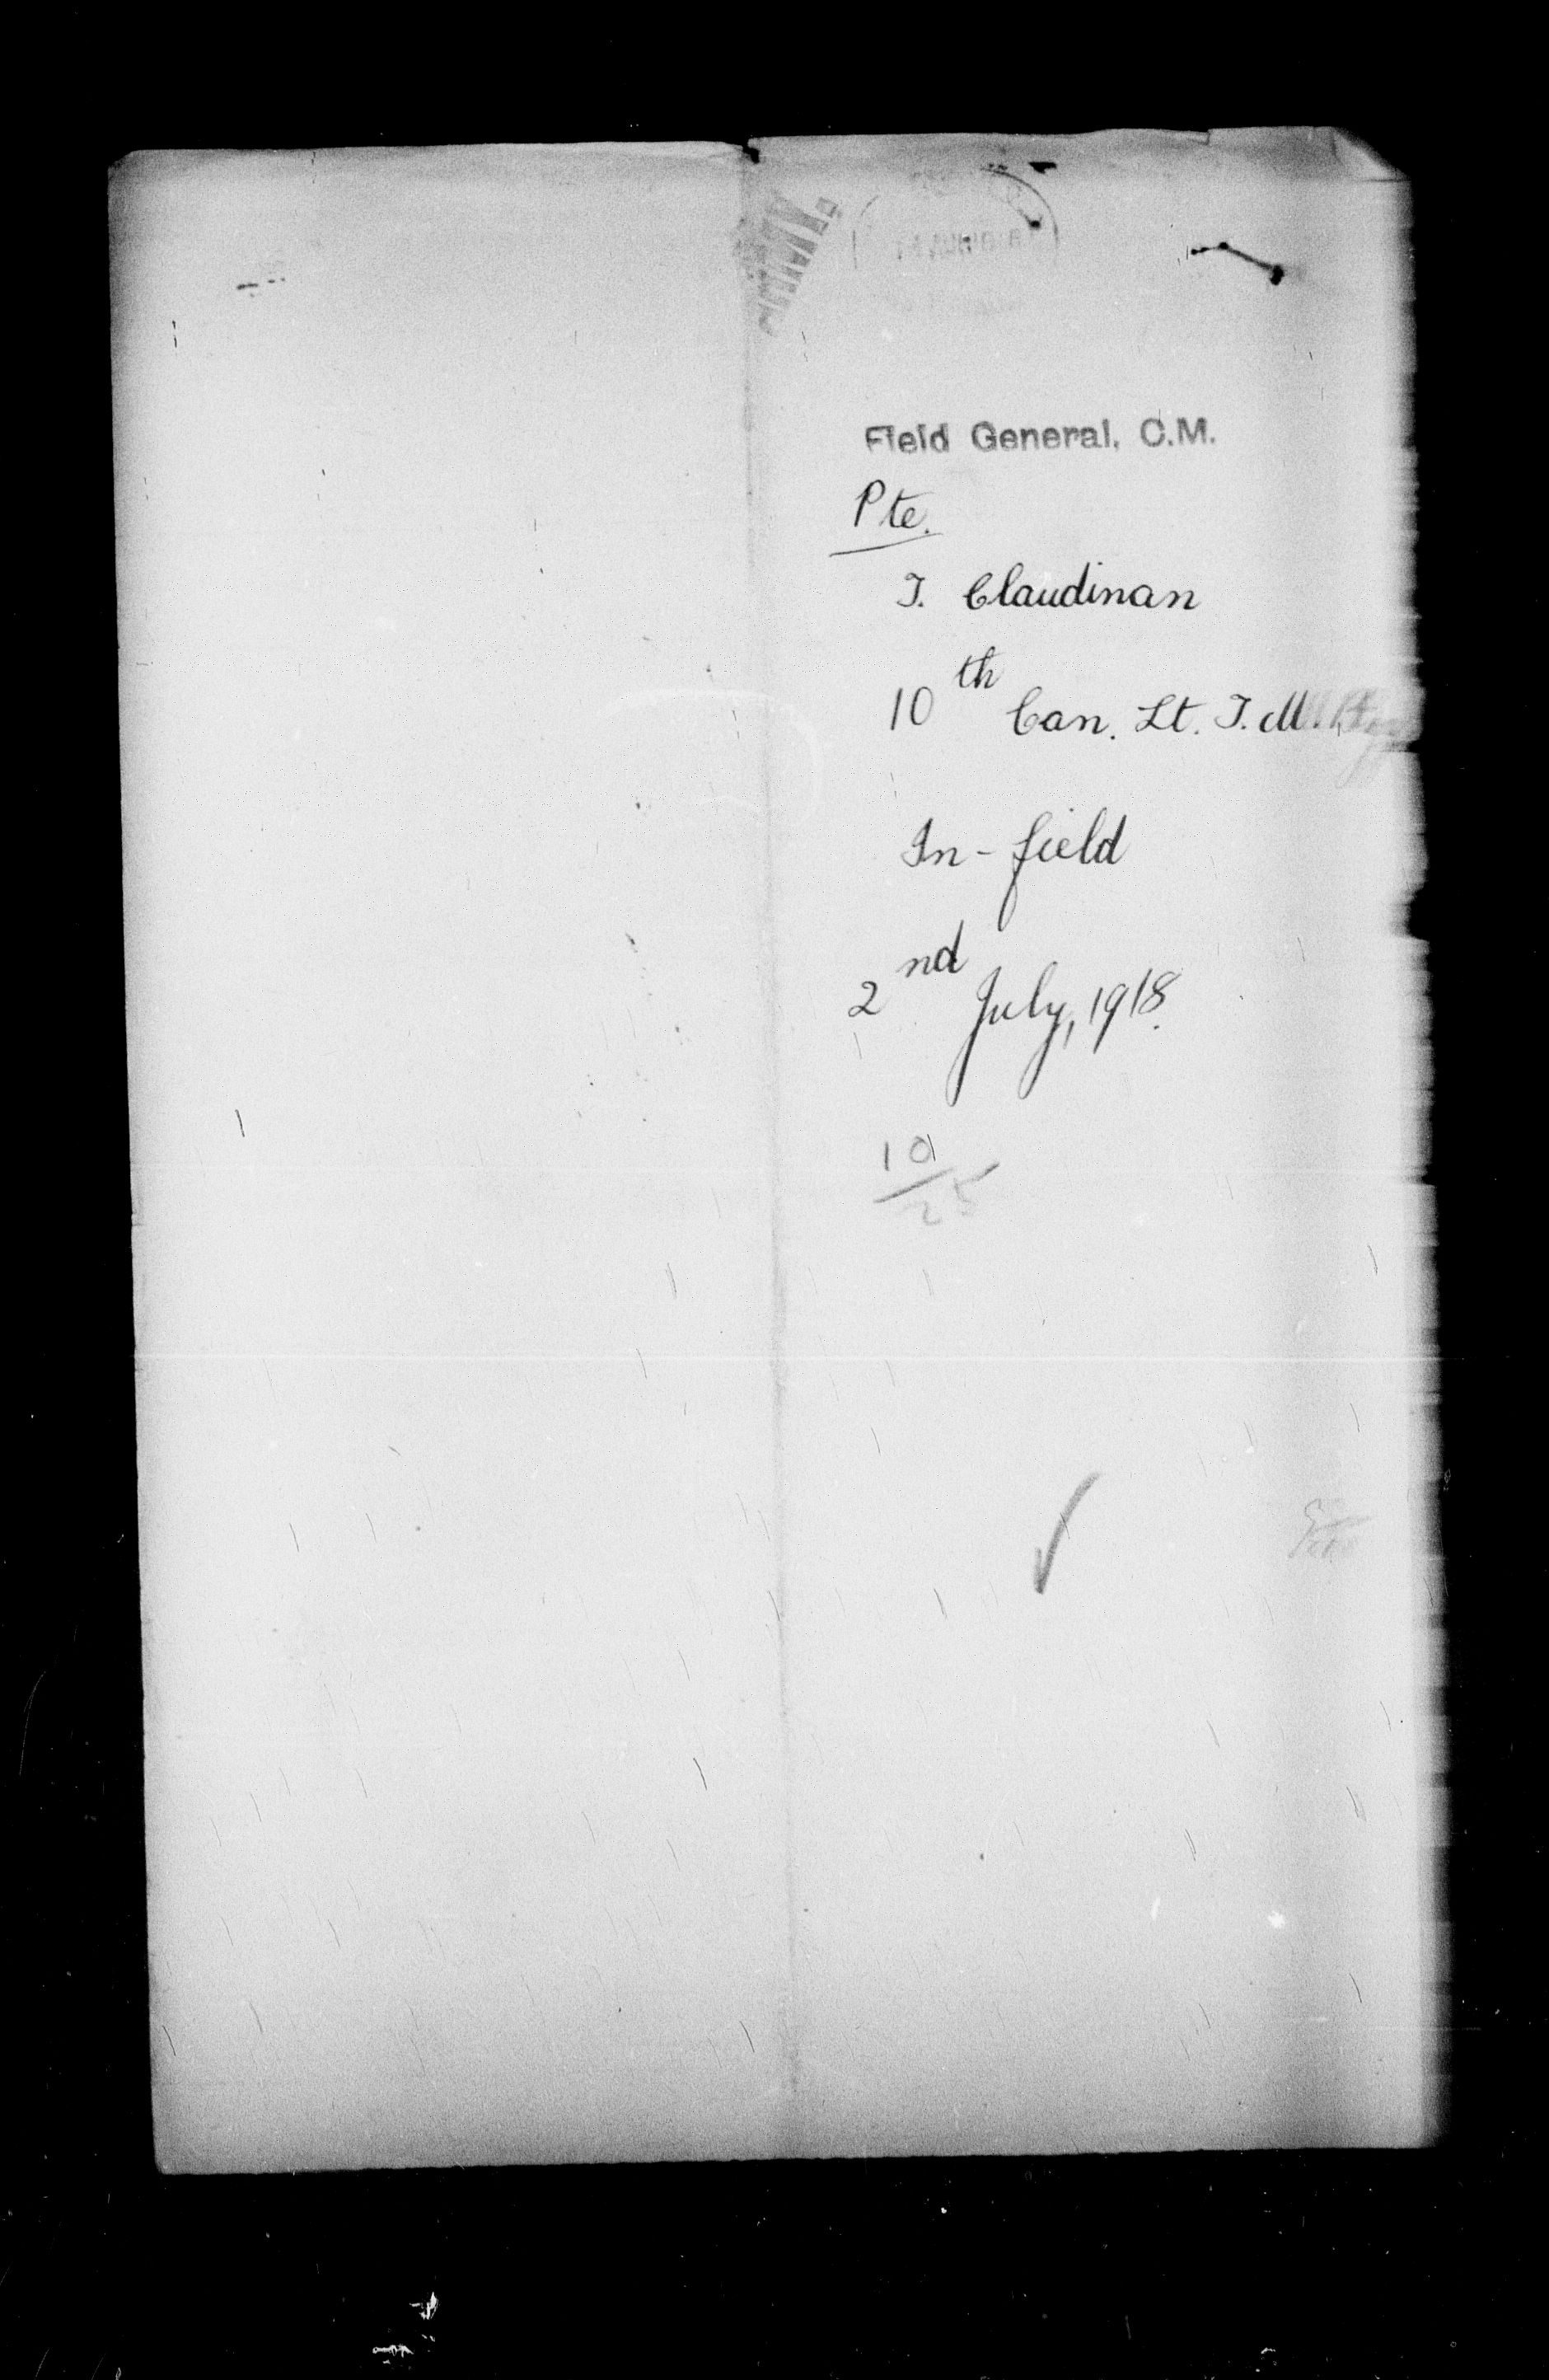 Field General. C.M.
Pte.
T. Claudinan
10th Can. Lt. T. M. Bty
In-field
2nd July, 1918.
10
25